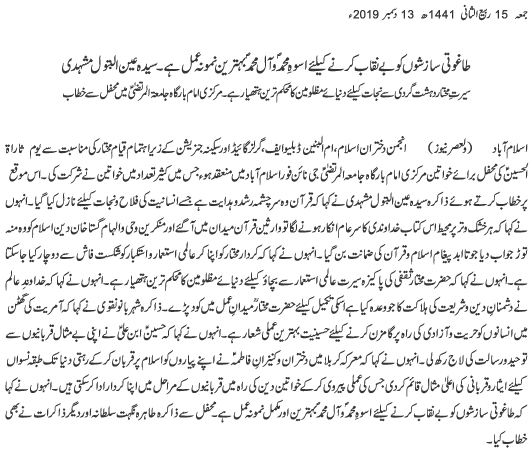 جمعہ 15 ربیع الثانی 1441ھ 13 دسمبر 2019ء
طاغوتی سازشوں کو بے نقاب کرنے کیلئے اسوہ محمدؐ و آل محمدؐ بہترین نمونہ عمل ہے۔ سیدہ عین البتول مشہدی
سیرتِ مختار دہشت گردی سے نجات کیلئے دنیائے مظلومین کا محکم ترین ہتھیار ہے۔ مرکزی امام بارگاہ جامعۃ المرتضیٰؑ میں محفل سے خطاب
اسلام آباد (ولعصر نیوز) انجمن دختران اسلام، ام البنین ڈبلیو ایف، گرلز گائیڈ اور سکینہ جنریشن کے زیر اہتمام قیام مختار کی مناسبت سے یوم ثاراۃ
الحسینؑ کی محفل برائے خواتین مرکزی امام بارگاہ جامعۃ المرتضیٰ جی نائن فور اسلام آباد میں منعقد ہوئی جس میں کثیر تعداد میں خواتین نے شرکت کی۔ اس موقع
پر خطاب کرتے ہوئے ذاکرہ سیدہ عین البتول مشہدی نے کہا کہ قرآن وہ سرچشمہ رشد و ہدایت ہے جسے انسانیت کی فلاح و نجات کیلئے نازل کیا گیا۔ انہوں
نے کہا کہ ہر خشک و تر پر محیط اس کتاب خداوندی کا سرعام انکار ہونے لگا تو وارثین قرآن میدان میں آگئے اور منکرین وحی و الہام گستاخان دین اسلام کو وہ منہ
توڑ جواب دیا جو تا ابد پیغام اسلام و قرآن کی ضمانت بن گیا۔ انہوں نے کہا کہ کردار مختار کو اپنا کر عالمی استعمار و استکبار کو شکست فاش سے دوچار کیا جاسکتا
ہے۔ انہوں نے کہا کہ حضرت مختار ثقفی کی پاکیزہ سیرت عالمی استعمار سے بچاؤ کیلئے دنیائے مظلومین کا محکم ترین ہتھیار ہے۔ انہوں نے کہا کہ خداوند عالم
نے دشمنان دین و شریعت کی ہلاکت کا جو وعدہ کیا ہے اسکی تکمیل کیلئے حضرت مختارؒ میدان عمل میں کود پڑے۔ ذاکرہ شہر بانو نقوی نے کہا کہ آمریت کی گھٹن
میں انسانوں کو حریت و آزادی کی راہ پر گامزن کرنے کیلئے حسینیت بہترین عملی شعار ہے۔ انہوں نے کہا کہ حسینؑ ابن علیؑ نے اپنی بے مثال قربانیوں سے
توحید و رسالت کی لاج رکھ لی۔ انہوں نے کہا کہ معرکہ کربلا میں دختران و کنیزان فاطمہؑ نے اپنے پیاروں کو اسلام پر قربان کر کے رہتی دنیا تک طبقہ نسواں
کیلئے ایثار و قربانی کی اعلیٰ مثال قائم کر دی جس کی عملی پیروی کر کے خواتین دین کی راہ میں قربانیوں کے مراحل میں اپنا کردار ادا کر سکتی ہیں۔ انہوں نے کہا
کہ طاغوتی سازشوں کو بے نقاب کرنے کیلئے اسوہ محمدؐ و آل محمدؐ بہترین اور مکمل نمونہ عمل ہے۔ محفل سے ذاکرہ طاہرہ نگہت سلطانہ اور دیگر ذاکرات نے بھی
خطاب کیا۔